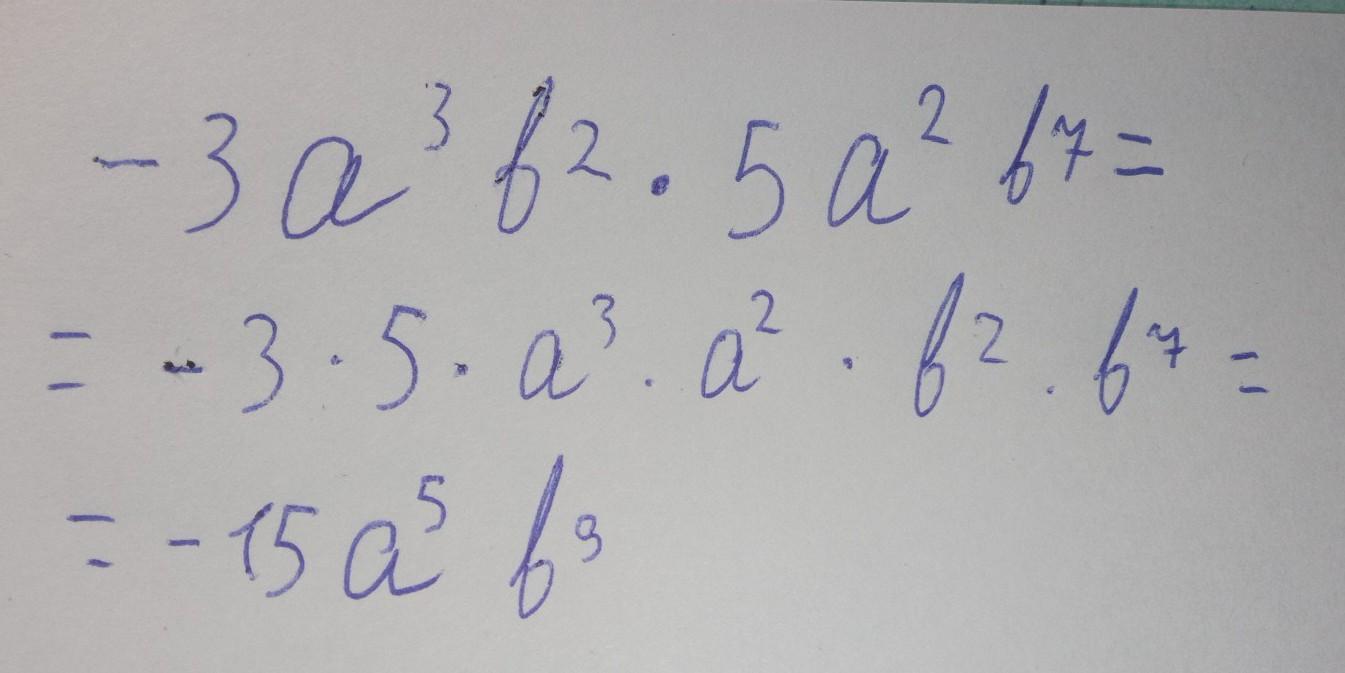 -3a³b²·5a²b⁷=
=-3·5·a³·a²·b²·b⁷=
=-15a⁵b⁹